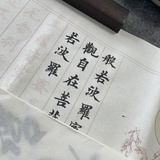 般若波羅
觀自在菩
若波羅